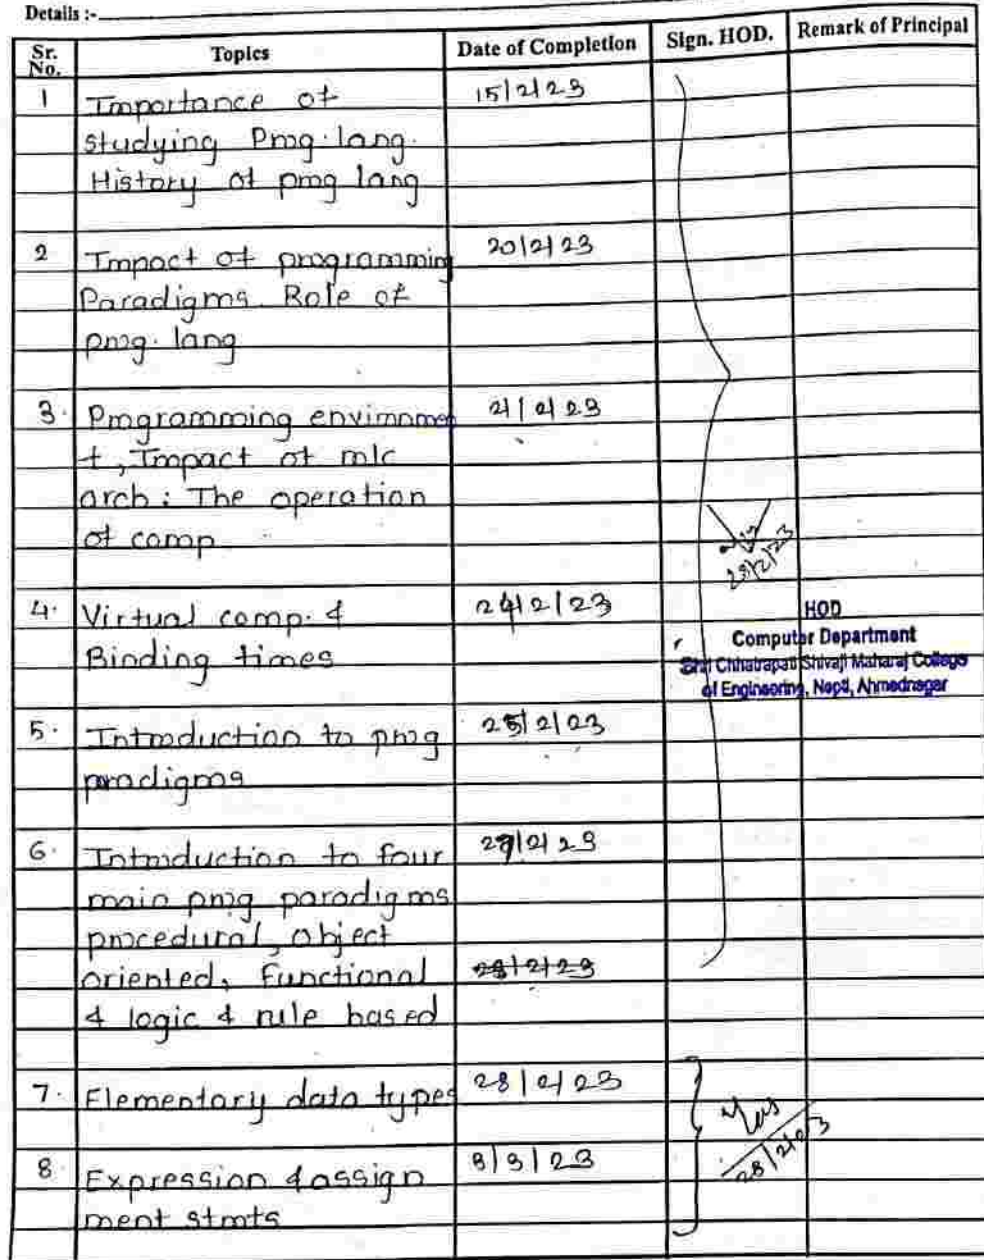 Details :-
Sr. No. Topics Date of Completion Sign. HOD. Remark of Principal
1 Importance of 15/2/23
studying Prog. lang.
History of prog lang
2 Impact of programming 20/2/23
Paradigms. Role of
prog. lang
3. Programming environmen 21/2/23
t, Impact of m/c
arch: The operation
of comp
23/2/23
4. Virtual comp. & 24/2/23
Binding times
HOD
Computer Department
Shri Chhatrapati Shivaji Maharaj College
of Engineering, Nepti, Ahmednagar
5. Introduction to prog 25/2/23
paradigms
6. Introduction to four 27/2/23
main prog paradigms
procedural, object
oriented, Functional 28/2/23
& logic & rule based
7. Elementary data types 28/2/23
28/2/23
8 Expression & assign 3/3/23
ment stmts